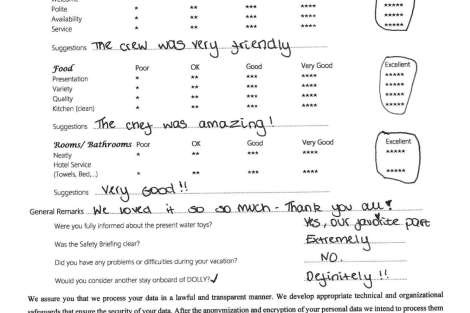 Polite * ** *** **** *****
Availability * ** *** **** *****
Service * ** *** **** *****
Suggestions The crew was very friendly
Food Poor OK Good Very Good Excellent
Presentation * ** *** **** *****
Variety * ** *** **** *****
Quality * ** *** **** *****
Kitchen (clean) * ** *** **** *****
Suggestions The chef was amazing!
Rooms/ Bathrooms Poor OK Good Very Good Excellent
Neatly * ** *** **** *****
Hotel Service
(Towels, Bed,..) * ** *** **** *****
Suggestions Very Good!!
General Remarks We loved it so so much - Thank you all!
Were you fully informed about the present water toys? Yes, our favorite part
Was the Safety Briefing clear? Extremely
Did you have any problems or difficulties during your vacation? NO.
Would you consider another stay onboard of DOLLY? ✓ Definitely !!
We assure you that we process your data in a lawful and transparent manner. We develop appropriate technical and organizational
safeguards that ensure the security of your data. After the anonymization and encryption of your personal data we intend to process them